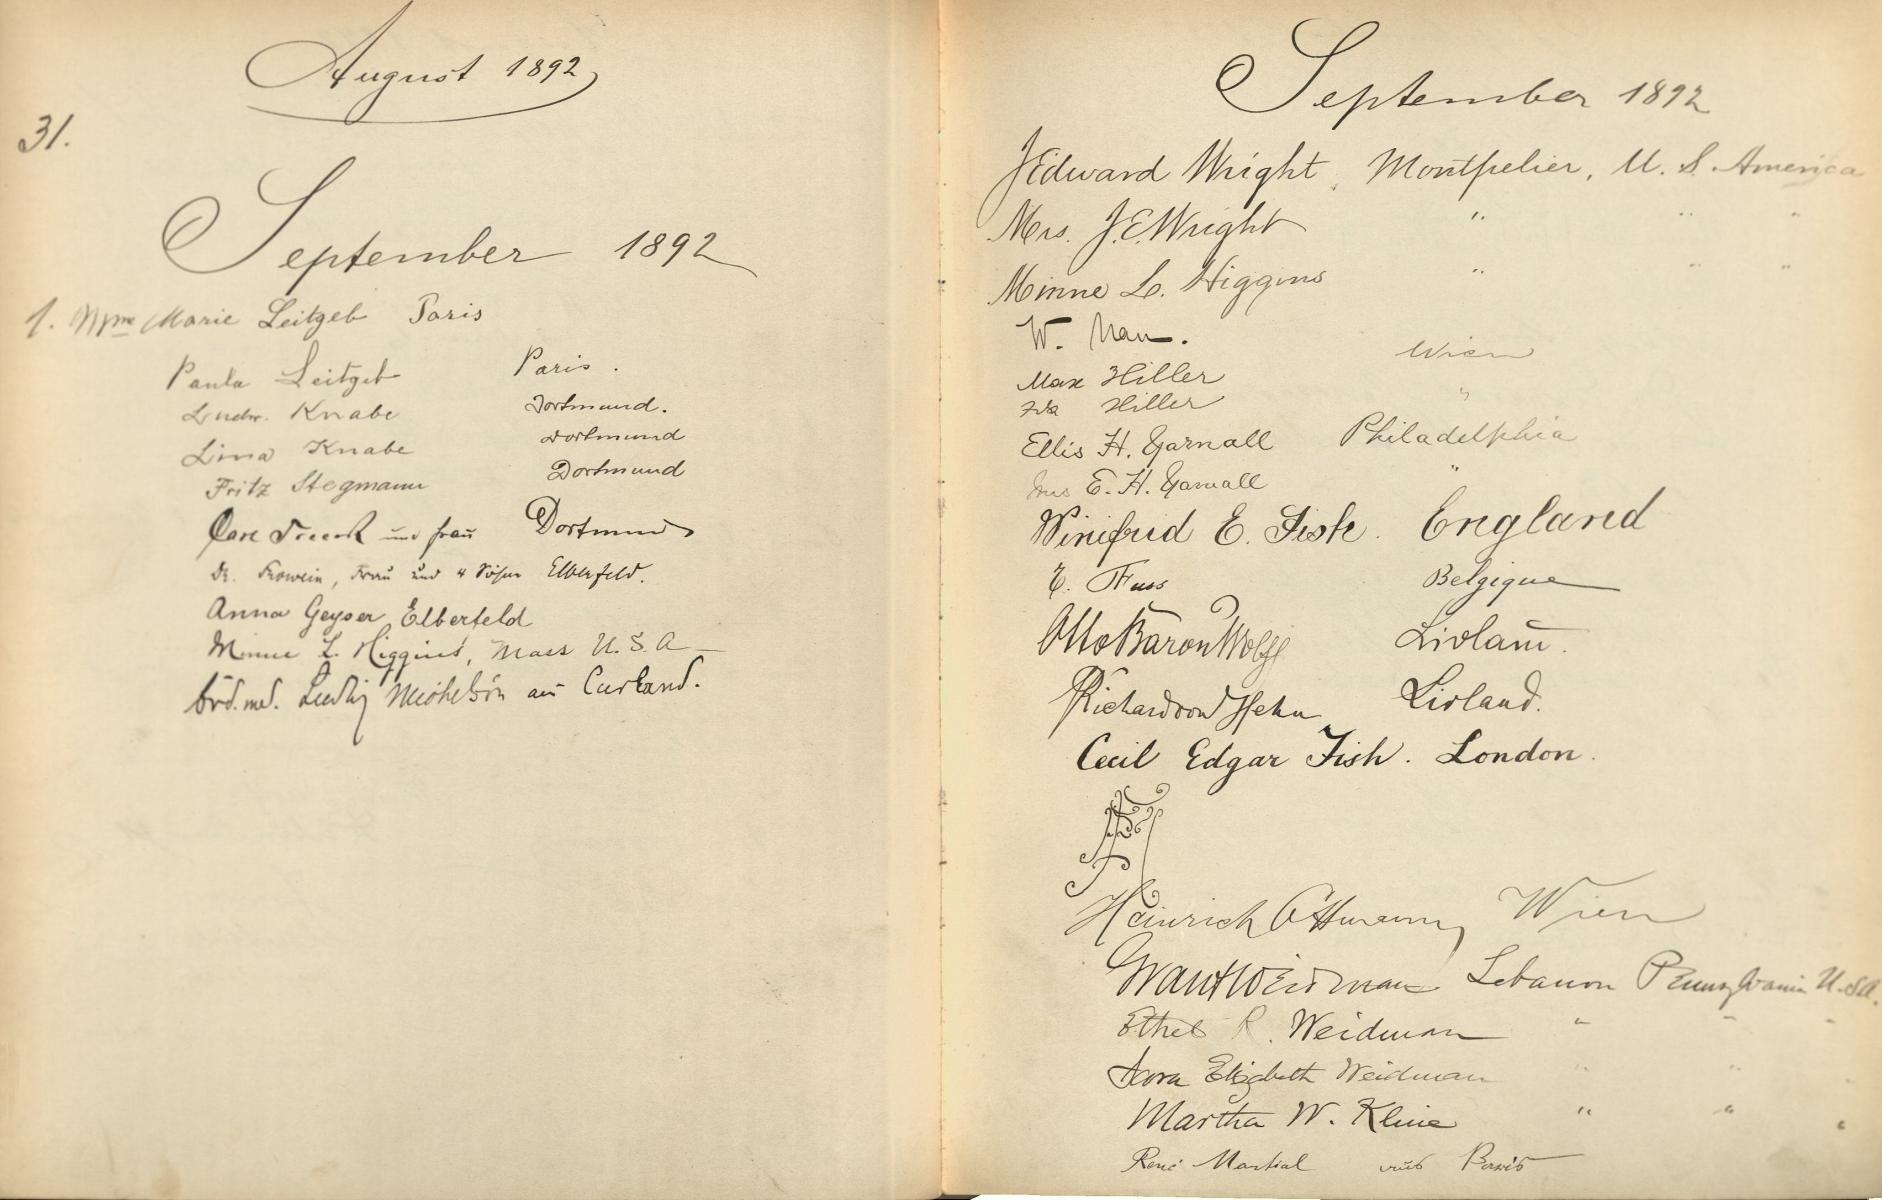 August 1892
31.
September 1892
1. Mme Marie Leitgeb Paris
Paula Leitgeb Paris.
Ludw. Knabe Dortmund.
Lina Knabe Dortmund
Fritz Stegmann Dortmund
Carl und Frau Dortmund
Dr. Frowein, Frau und 4 Söhne Elberfeld.
Anna Geyser Elberfeld
Minnie L. Higgins, Mass U.S.A
med. Ludwig Michelson aus Curland.
September 1892
J Edward Wright, Montpelier, U. S. America
Mrs. J. E. Wright " " "
Minne L. Higgins " " "
W. Nau.
Max Hiller Wien
Ida Hiller "
Ellis H. Yarnall Philadelphia
Mrs E. H. Yarnall "
Winifrid E. Fish. England
E. Fuss Belgique
Otto Baron Wolff Livland.
Richard von Hehn Livland.
Cecil Edgar Fish. London.
Heinrich Ottmann, Wien
Grant Weidman Lebanon Pennsylvania U.S.A.
Ethel R. Weidman " " "
Dora Elizabeth Weidman " " "
Martha W. Kline " " "
René Martial aus Paris